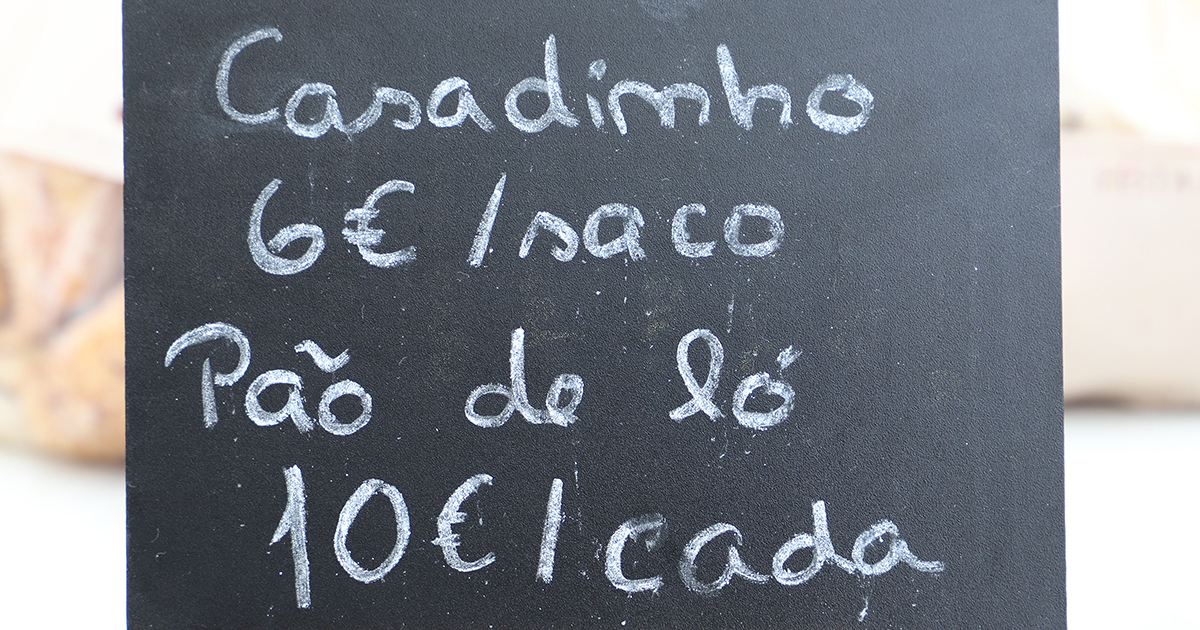 Casadinho
6€ /saco
Pão de ló
10€/cada